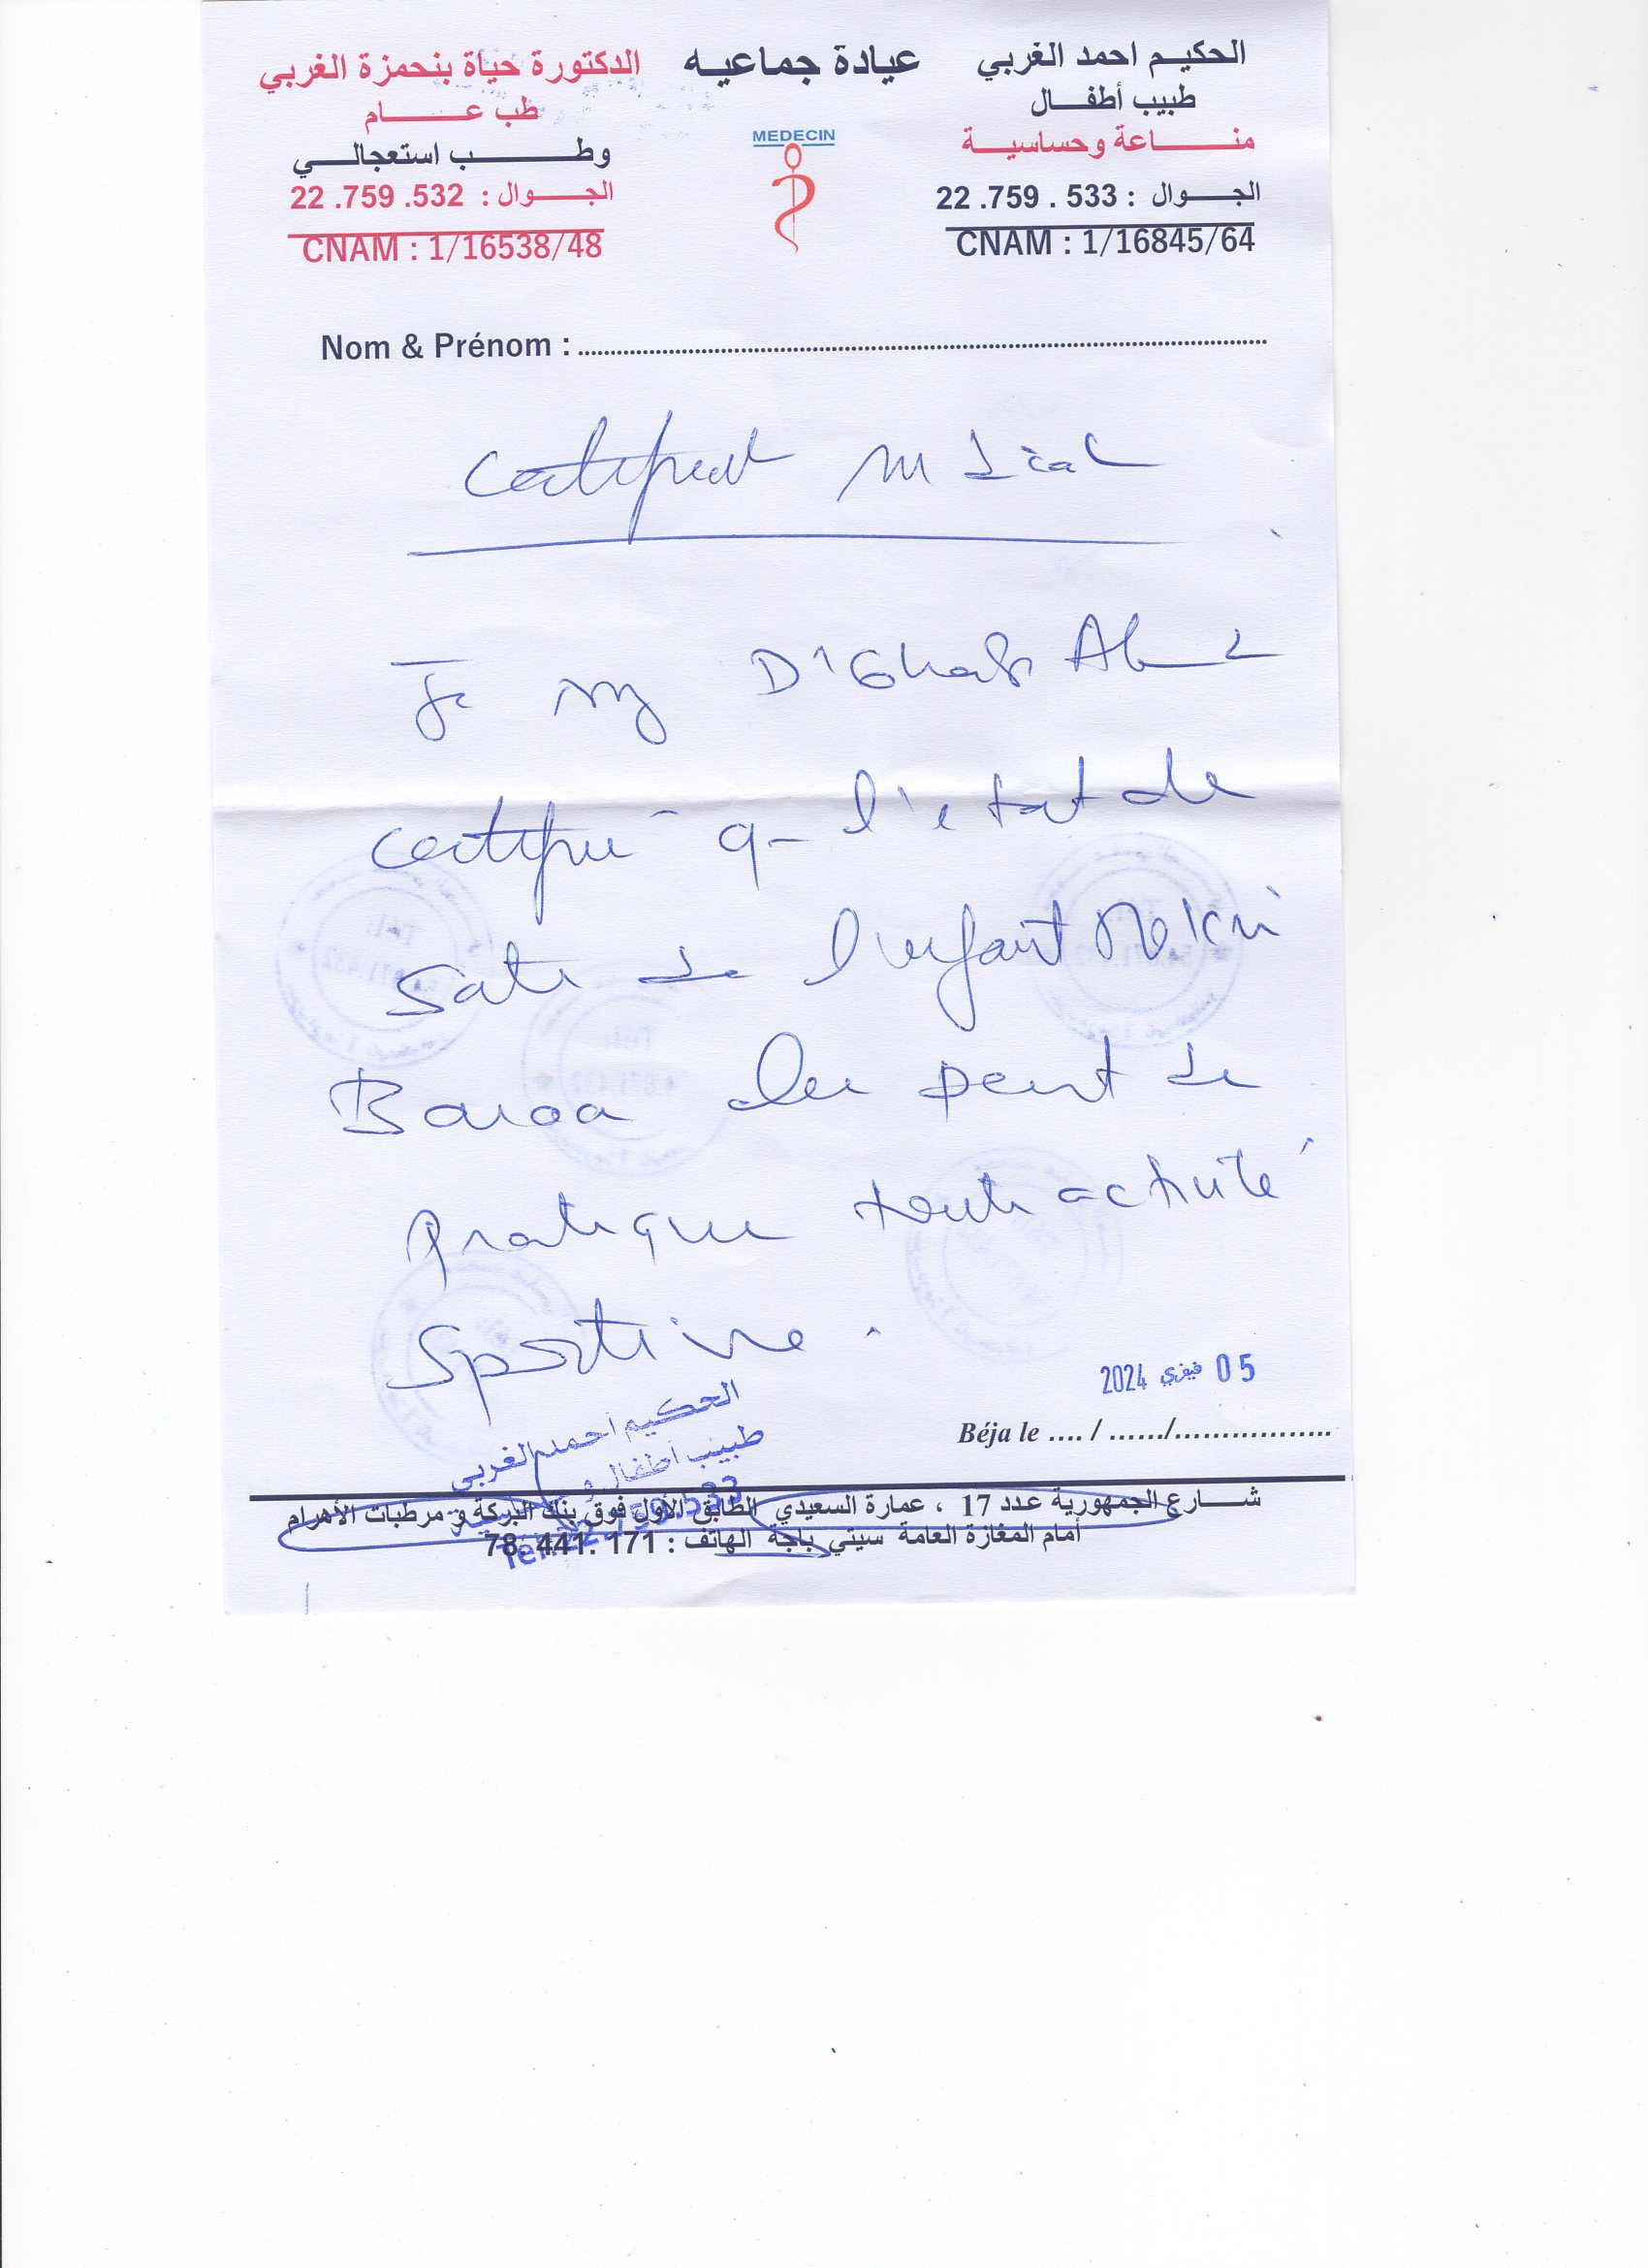 الحكيم احمد الغربي
طبيب أطفال
مناعة وحساسية
الجوال : 533 . 759. 22
CNAM : 1/16845/64
عيادة جماعيه
MEDECIN
الدكتورة حياة بنحمزة الغربي
طب عام
وطب استعجالي
الجوال : 532. 759. 22
CNAM : 1/16538/48
Nom & Prénom :
Certificat médical
Je sg Dr Gharbi Ahmed
certifie que l'état de
santé de l'enfant Mekni
Baraa lui permet de
pratiquer toute activité
sportive.
05 فيفري 2024
Béja le .... / ....../.................
الحكيم أحمد الغربي
طبيب أطفال
شارع الجمهورية عدد 17 ، عمارة السعيدي الطابق الأول فوق بنك البركة و مرطبات الأهرام
أمام المغازة العامة سيتي باجة الهاتف : 171 .441 .78